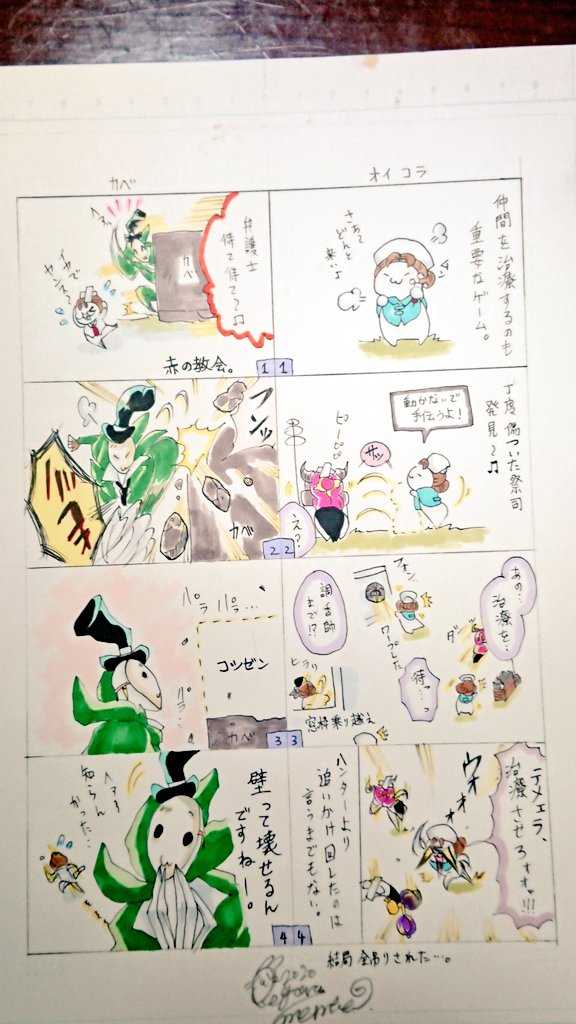 オイコラ
仲間を治療するのも
重要なゲーム。
さあて
どんと
来いよ
1
丁度傷ついた祭司
発見〜♫
動かないで
手伝うよ！
サッ
ピーピピ
え？
2
あの…
治療を…
ダッ
待っっ
フォン
ワープした
調香師
まで!?
ヒラリ
窓枠乗り越え
3
テメェラ、
治療させろオオォ!!!
ウオオオォ
ハンターより
追いかけ回したのは
言うまでもない。
4
結局全吊りされた…。
カベ
弁護士
待て待て〜♫
カベ
イヤで
ヤンス〜
赤の教会。
1
フンッ
バコォ
カベ
2
パラ
パラ…
パラ…
コツゼン
カベ
3
壁って壊せるん
ですねー。
へぇぇ
知らん
かった…
4
2020